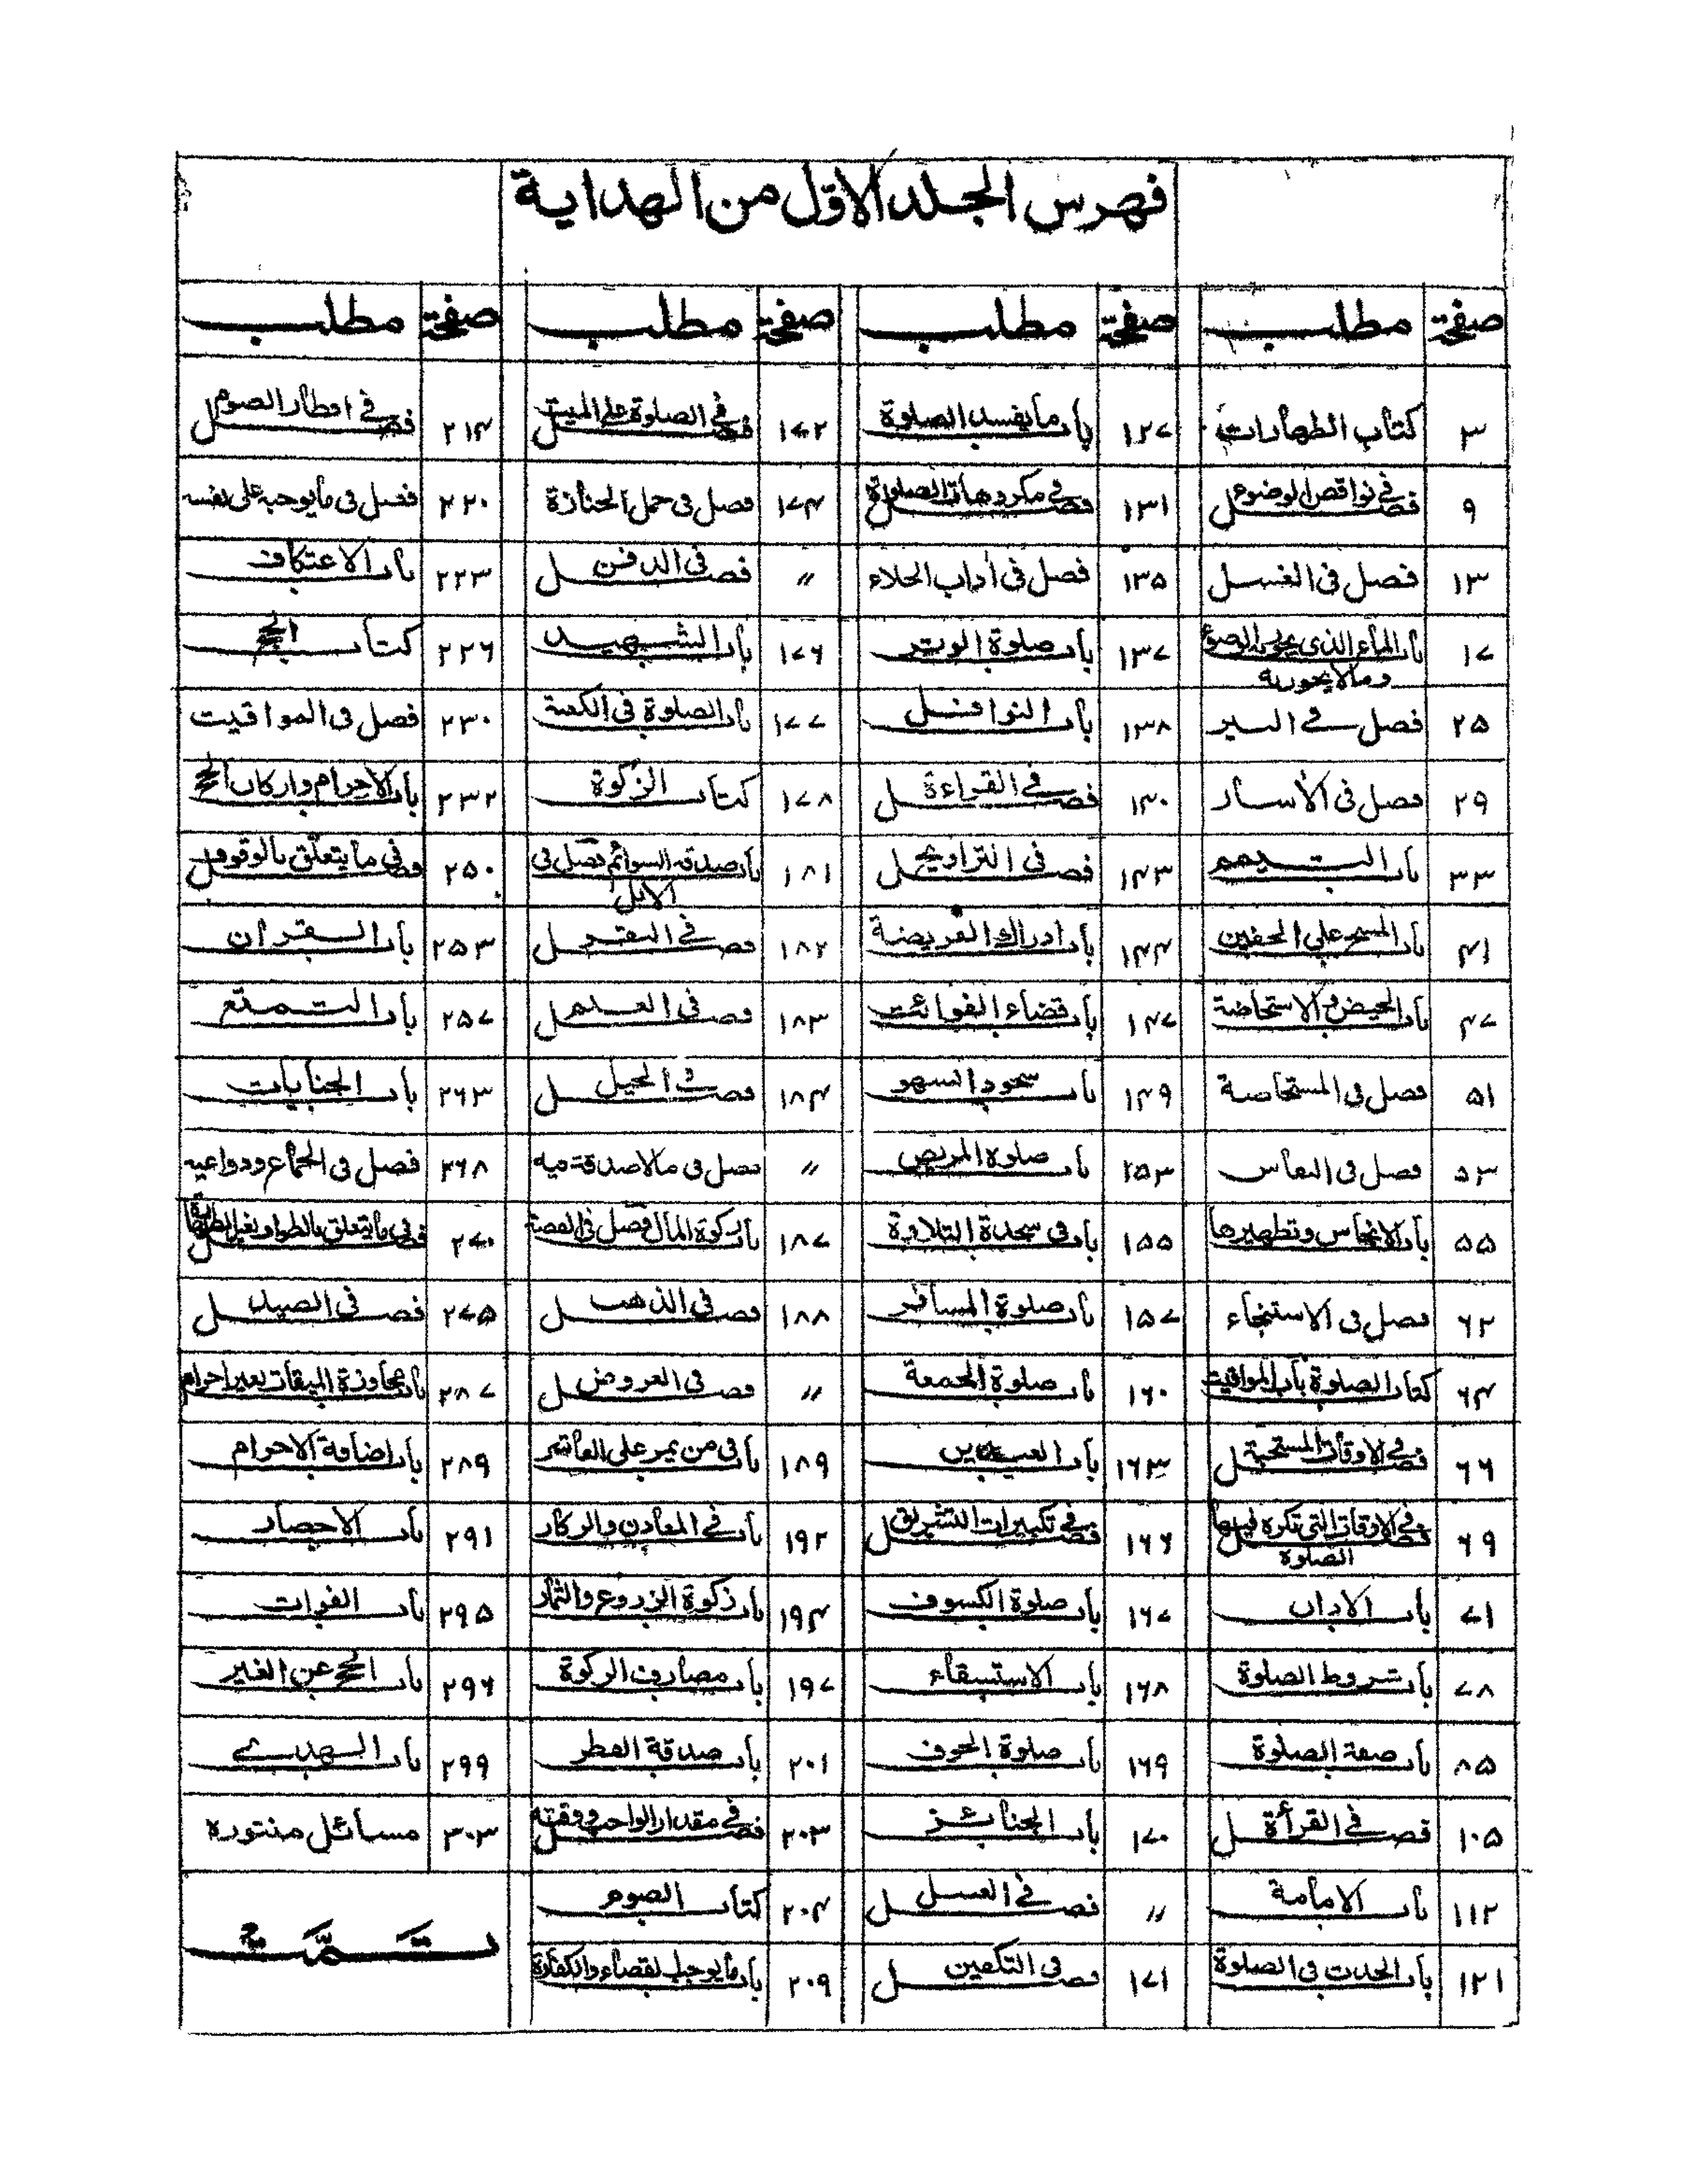 فهرس الجلد الاوّل من الهداية
صفحة مطلب صفحة مطلب صفحة مطلب صفحة مطلب
۳ كتاب الطهارات ۱۲۷ باب ما يفسد الصلوة ۱۷۲ فصل في الصلوة على الميت ۲۱۴ فصل في افطار الصوم
۹ فصل في نواقص الوضوء ۱۳۱ فصل في مكروهات الصلوة ۱۷۴ فصل في حمل الجنازة ۲۲۰ فصل في ما يوجبه على نفسه
۱۳ فصل في الغسل ۱۳۵ فصل في اداب الخلاء ״ فصل في الدفن ۲۲۳ باب الاعتكاف
۱۷ باب الماء الذي يجوز به الوضوء وما لا يجوز به ۱۳۷ باب صلوة الوتر ۱۷۶ باب الشهيد ۲۲۶ كتاب الحج
۲۵ فصل في البير ۱۳۸ باب النوافل ۱۷۷ باب الصلوة في الكعبة ۲۳۰ فصل في المواقيت
۲۹ فصل في الأسار ۱۴۰ فصل في القراءة ۱۷۸ كتاب الزكوة ۲۳۲ باب الاحرام واركان الحج
۳۳ باب التيمم ۱۴۳ فصل في التراويح ۱۸۱ باب صدقة السوائم فصل في الابل ۲۵۰ فصل في ما يتعلق بالوقوف
۴۱ باب المسح على الخفين ۱۴۴ باب ادراك الفريضة ۱۸۲ فصل في البقر ۲۵۳ باب القران
۴۷ باب الحيض والاستحاضة ۱۴۷ باب قضاء الفوائت ۱۸۳ فصل في الغنم ۲۵۷ باب التمتع
۵۱ فصل في المستحاضة ۱۴۹ باب سجود السهو ۱۸۴ فصل في الخيل ۲۶۳ باب الجنايات
۵۳ فصل في النفاس ۱۵۳ باب صلوة المريض ״ فصل في ما لا صدقة فيه ۲۶۸ فصل في الجماع ودواعيه
۵۵ باب الانجاس وتطهيرها ۱۵۵ باب في سجدة التلاوة ۱۸۷ باب زكوة المال فصل في الفضة ۲۷۰ فصل في ما يتعلق بالطواف بغير الطهارة
۶۲ فصل في الاستنجاء ۱۵۷ باب صلوة المسافر ۱۸۸ فصل في الذهب ۲۷۵ فصل في الصيد
۶۴ كتاب الصلوة باب المواقيت ۱۶۰ باب صلوة الجمعة ״ فصل في العروض ۲۸۷ باب مجاوزة الميقات بغير احرام
۶۶ فصل في الاوقات المستحبة ۱۶۳ باب العيدين ۱۸۹ باب في من يمر على العاشر ۲۸۹ باب اضافة الاحرام
۶۹ فصل في الاوقات التي تكره فيها الصلوة ۱۶۶ فصل في تكبيرات التشريق ۱۹۲ باب في المعادن والركاز ۲۹۱ باب الاحصار
۷۱ باب الاذان ۱۶۷ باب صلوة الكسوف ۱۹۴ باب زكوة الزروع والثمار ۲۹۵ باب الفوات
۷۸ باب شروط الصلوة ۱۶۸ باب الاستسقاء ۱۹۷ باب مصارف الزكوة ۲۹۶ باب الحج عن الغير
۸۵ باب صفة الصلوة ۱۶۹ باب صلوة الخوف ۲۰۱ باب صدقة الفطر ۲۹۹ باب الهدي
۱۰۵ فصل في القرأة ۱۷۰ باب الجنائز ۲۰۳ فصل في مقدار الواجب ووقته ۳۰۳ مسائل منثورة
۱۱۲ باب الامامة ״ فصل في الغسل ۲۰۴ كتاب الصوم
تَمَّت
۱۲۱ باب الحدث في الصلوة ۱۷۱ فصل في التكفين ۲۰۹ باب ما يوجب القضاء والكفارة